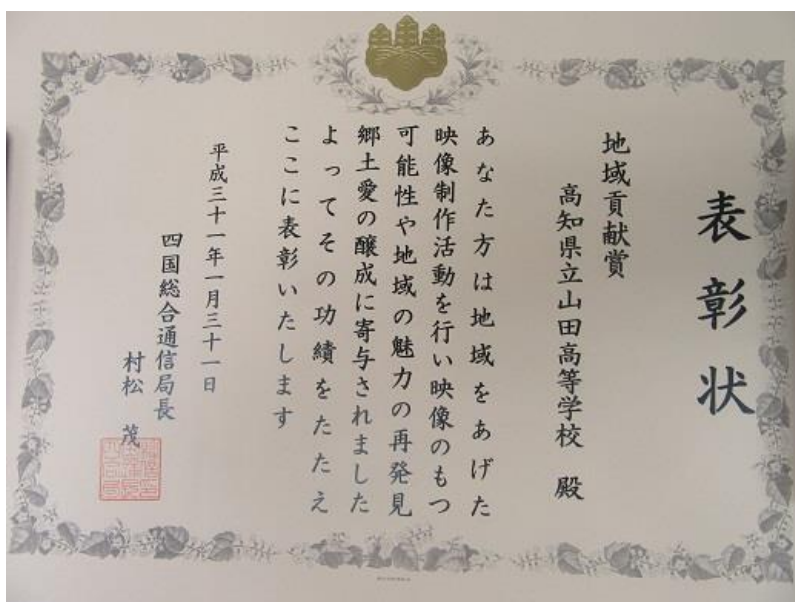 表彰状
地域貢献賞
高知県立山田高等学校 殿
あなた方は地域をあげた
映像制作活動を行い映像のもつ
可能性や地域の魅力の再発見
郷土愛の醸成に寄与されました
よってその功績をたたえ
ここに表彰いたします
平成三十一年一月三十一日
四国総合通信局長
村松 茂